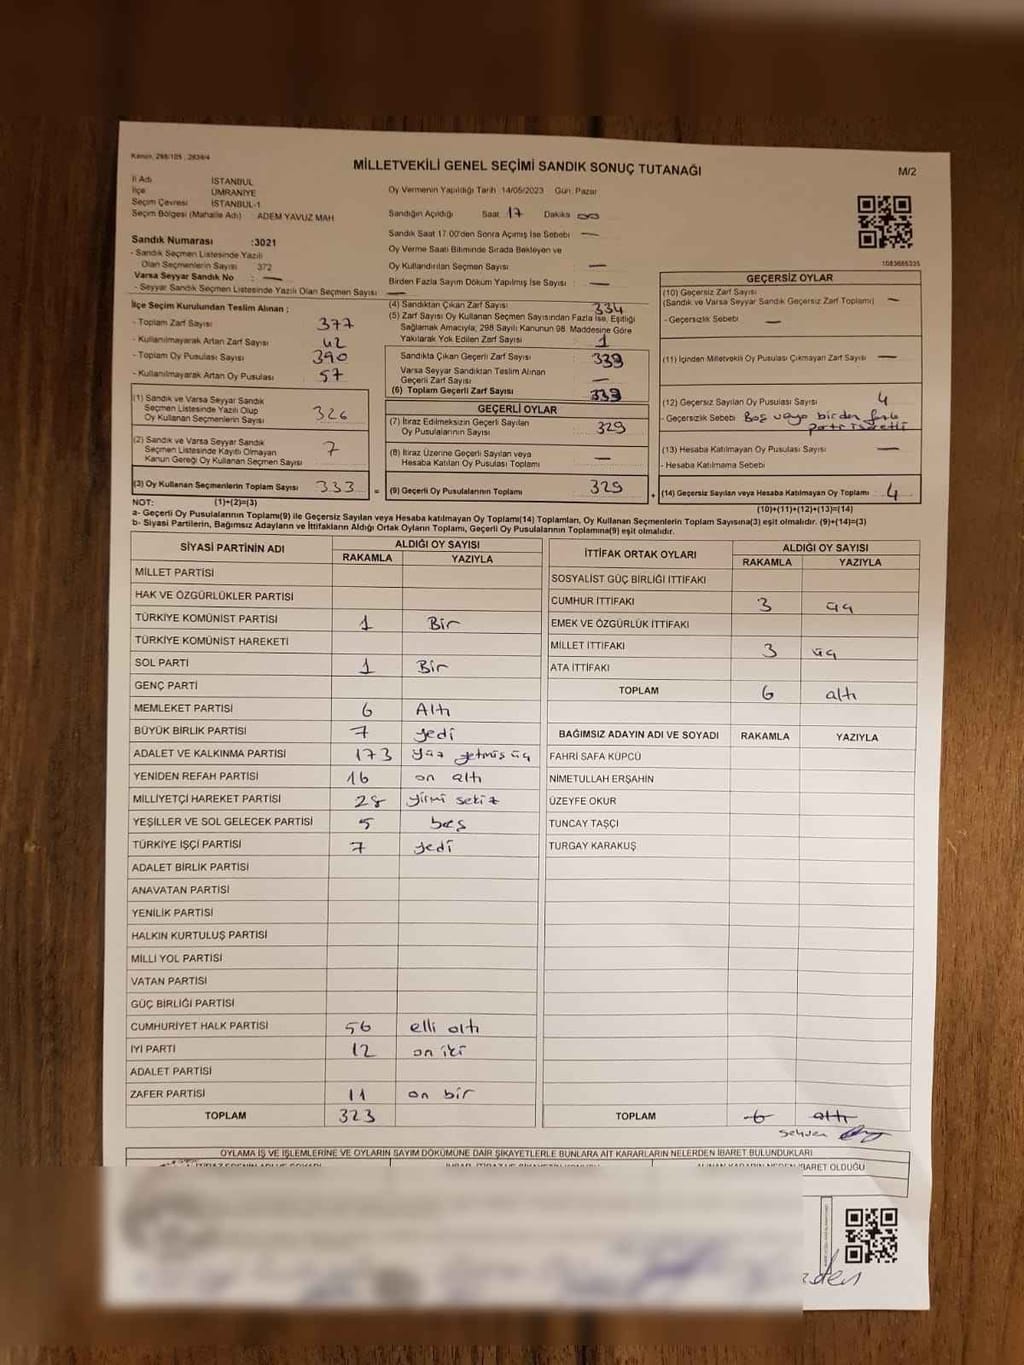 Kanun, 298/105 , 2834/4
MİLLETVEKİLİ GENEL SEÇİMİ SANDIK SONUÇ TUTANAĞI
M/2
İl Adı İSTANBUL
İlçe ÜMRANİYE
Seçim Çevresi İSTANBUL-1
Seçim Bölgesi (Mahalle Adı) ADEM YAVUZ MAH
Sandık Numarası :3021
- Sandık Seçmen Listesinde Yazılı
Olan Seçmenlerin Sayısı 372
Varsa Seyyar Sandık No : —
- Seyyar Sandık Seçmen Listesinde Yazılı Olan Seçmen Sayısı: —
Oy Vermenin Yapıldığı Tarih :14/05/2023 Gün: Pazar
Sandığın Açıldığı Saat 17 Dakika 00
Sandık Saat 17:00'den Sonra Açımış İse Sebebi —
Oy Verme Saati Bitiminde Sırada Bekleyen ve
Oy Kullandırılan Seçmen Sayısı —
Birden Fazla Sayım Döküm Yapılmış İse Sayısı: —
1083665335
İlçe Seçim Kurulundan Teslim Alınan ;
- Toplam Zarf Sayısı 377
- Kullanılmayarak Artan Zarf Sayısı 42
- Toplam Oy Pusulası Sayısı 390
- Kullanılmayarak Artan Oy Pusulası 57
(1) Sandık ve Varsa Seyyar Sandık
Seçmen Listesinde Yazılı Olup
Oy Kullanan Seçmenlerin Sayısı 326
(2) Sandık ve Varsa Seyyar Sandık
Seçmen Listesinde Kayıtlı Olmayan
Kanun Gereği Oy Kullanan Seçmen Sayısı 7
(3) Oy Kullanan Seçmenlerin Toplam Sayısı 333 =
(4) Sandıktan Çıkan Zarf Sayısı 334
(5) Zarf Sayısı Oy Kullanan Seçmen Sayısından Fazla İse, Eşitliği
Sağlamak Amacıyla; 298 Sayılı Kanunun 98. Maddesine Göre
Yakılarak Yok Edilen Zarf Sayısı 1
Sandıkta Çıkan Geçerli Zarf Sayısı 333
Varsa Seyyar Sandıktan Teslim Alınan
Geçerli Zarf Sayısı —
(6) Toplam Geçerli Zarf Sayısı 333
GEÇERLİ OYLAR
(7) İtiraz Edilmeksizin Geçerli Sayılan
Oy Pusulalarının Sayısı 329
(8) İtiraz Üzerine Geçerli Sayılan veya
Hesaba Katılan Oy Pusulası Toplamı —
(9) Geçerli Oy Pusulalarının Toplamı 329 +
GEÇERSİZ OYLAR
(10) Geçersiz Zarf Sayısı
(Sandık ve Varsa Seyyar Sandık Geçersiz Zarf Toplamı) —
- Geçersizlik Sebebi —
(11) İçinden Milletvekili Oy Pusulası Çıkmayan Zarf Sayısı —
(12) Geçersiz Sayılan Oy Pusulası Sayısı 4
- Geçersizlik Sebebi Boş veya birden fazla
parti işaretli
(13) Hesaba Katılmayan Oy Pusulası Sayısı —
- Hesaba Katılmama Sebebi
(14) Geçersiz Sayılan veya Hesaba Katılmayan Oy Toplamı 4
NOT: (1)+(2)=(3) (10)+(11)+(12)+(13)=(14)
a- Geçerli Oy Pusulalarının Toplamı(9) ile Geçersiz Sayılan veya Hesaba katılmayan Oy Toplamı(14) Toplamları, Oy Kullanan Seçmenlerin Toplam Sayısına(3) eşit olmalıdır. (9)+(14)=(3)
b- Siyasi Partilerin, Bağımsız Adayların ve İttifakların Aldığı Ortak Oyların Toplamı, Geçerli Oy Pusulalarının Toplamına(9) eşit olmalıdır.
SİYASİ PARTİNİN ADI ALDIĞI OY SAYISI
RAKAMLA YAZIYLA
MİLLET PARTİSİ
HAK VE ÖZGÜRLÜKLER PARTİSİ
TÜRKİYE KOMÜNİST PARTİSİ 1 Bir
TÜRKİYE KOMÜNİST HAREKETİ
SOL PARTİ 1 Bir
GENÇ PARTİ
MEMLEKET PARTİSİ 6 Altı
BÜYÜK BİRLİK PARTİSİ 7 yedi
ADALET VE KALKINMA PARTİSİ 173 yüz yetmiş üç
YENİDEN REFAH PARTİSİ 16 on altı
MİLLİYETÇİ HAREKET PARTİSİ 28 yirmi sekiz
YEŞİLLER VE SOL GELECEK PARTİSİ 5 beş
TÜRKİYE İŞÇİ PARTİSİ 7 yedi
ADALET BİRLİK PARTİSİ
ANAVATAN PARTİSİ
YENİLİK PARTİSİ
HALKIN KURTULUŞ PARTİSİ
MİLLİ YOL PARTİSİ
VATAN PARTİSİ
GÜÇ BİRLİĞİ PARTİSİ
CUMHURİYET HALK PARTİSİ 56 elli altı
İYİ PARTİ 12 on iki
ADALET PARTİSİ
ZAFER PARTİSİ 11 on bir
TOPLAM 323
İTTİFAK ORTAK OYLARI ALDIĞI OY SAYISI
RAKAMLA YAZIYLA
SOSYALİST GÜÇ BİRLİĞİ İTTİFAKI
CUMHUR İTTİFAKI 3 üç
EMEK VE ÖZGÜRLÜK İTTİFAKI
MİLLET İTTİFAKI 3 üç
ATA İTTİFAKI
TOPLAM 6 altı
BAĞIMSIZ ADAYIN ADI VE SOYADI RAKAMLA YAZIYLA
FAHRİ SAFA KÜPCÜ
NİMETULLAH ERŞAHİN
ÜZEYFE OKUR
TUNCAY TAŞÇI
TURGAY KARAKUŞ
TOPLAM 6 altı
sehven
OYLAMA İŞ VE İŞLEMLERİNE VE OYLARIN SAYIM DÖKÜMÜNE DAİR ŞİKAYETLERLE BUNLARA AİT KARARLARIN NELERDEN İBARET BULUNDUKLARI